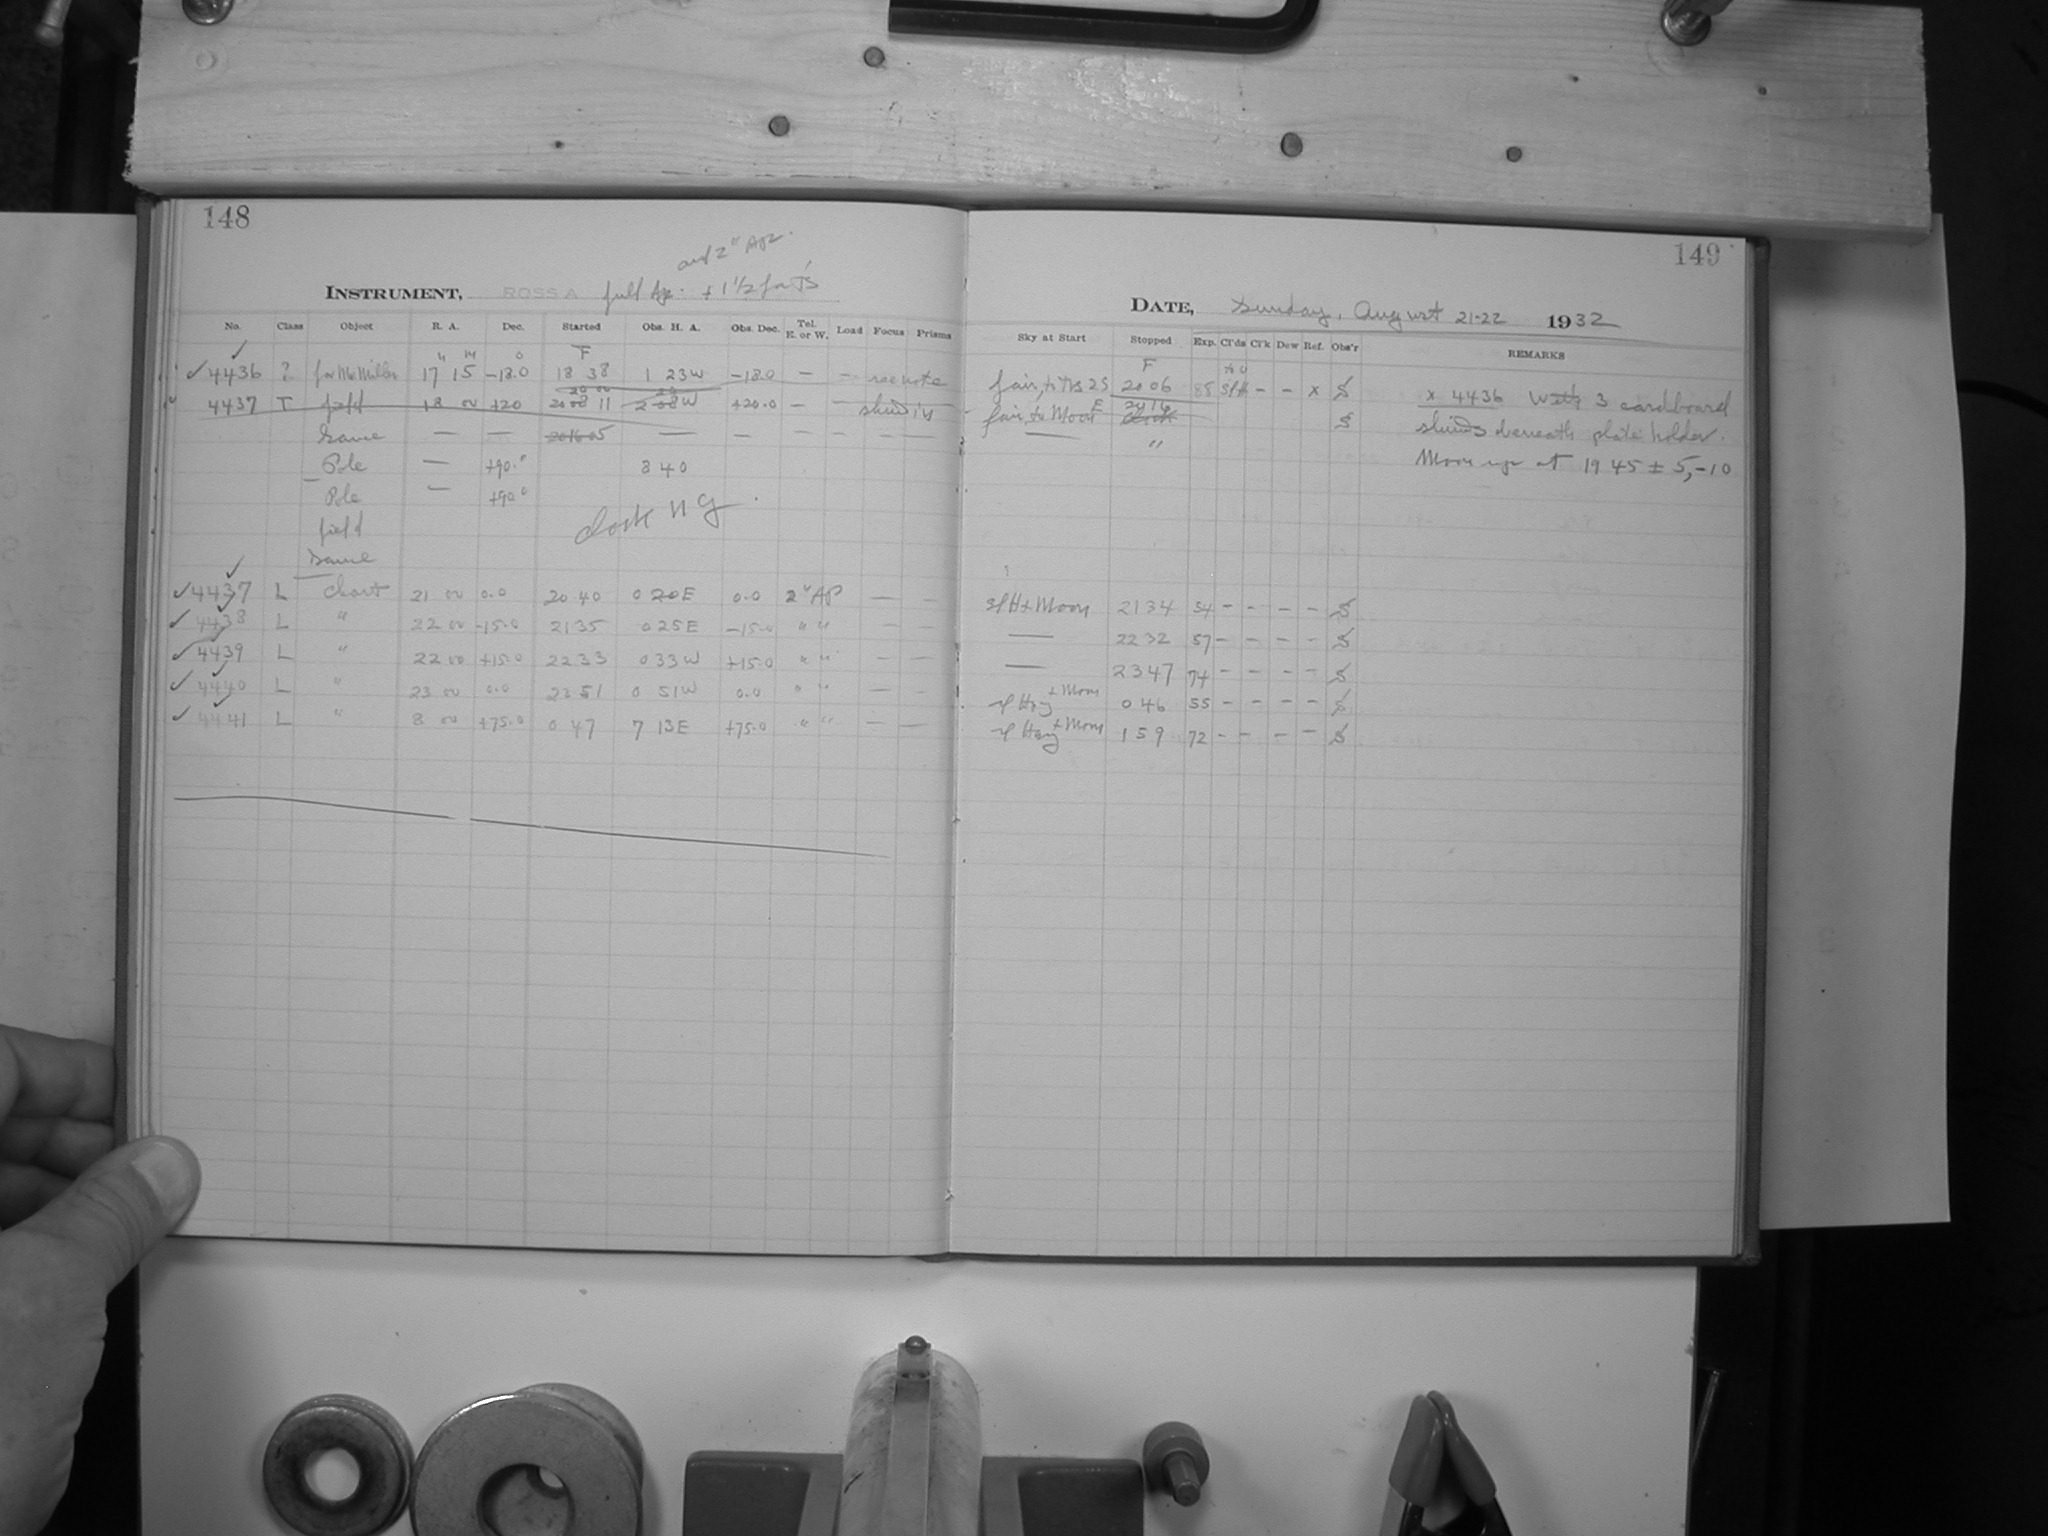 148
and 2" Ap.
INSTRUMENT, ROSS A full Ap. + 1 1/2 for T's
No. Class Object R. A. Dec. Started Obs. H. A. Obs. Dec. Tel. E. or W. Load Focus Prisms
H M O F
4436 ? for McMillan 17 15 -18.0 18 38 1 23W -18.0 — — see note
4437 T field 18 00 +20 11 W +20.0 — —
Same — — — — — — — —
Pole — +90.° 8 40
Pole — +90°
field clock NG.
Same
4437 L chart 21 00 0.0 20 40 0 20E 0.0 2" AP — —
4438 L " 22 00 -15.0 21 35 0 25E -15.0 " " — —
4439 L " 22 00 +15.0 22 33 0 33W +15.0 " " — —
4440 L " 23 00 0.0 23 51 0 51W 0.0 " " — —
4441 L " 8 00 +75.0 0 47 7 13E +75.0 " " — —
149
DATE, Sunday, August 21-22 1932
Sky at Start Stopped Exp. Cl'ds Cl'k Dew Ref. Obs'r REMARKS
F
fair, 20 06 88 - - x S x 4436 With 3 cardboard
fair, to Moon S shims beneath plate holder.
— " Moon up at 19 45 ± 5,-10
sl H + Moon 21 34 54 - - - - S
— 22 32 57 - - - - S
— 23 47 74 - - - - S
sl Hazy + Moon 0 46 55 - - - - S
sl Hazy + Moon 1 59 72 - - - - S